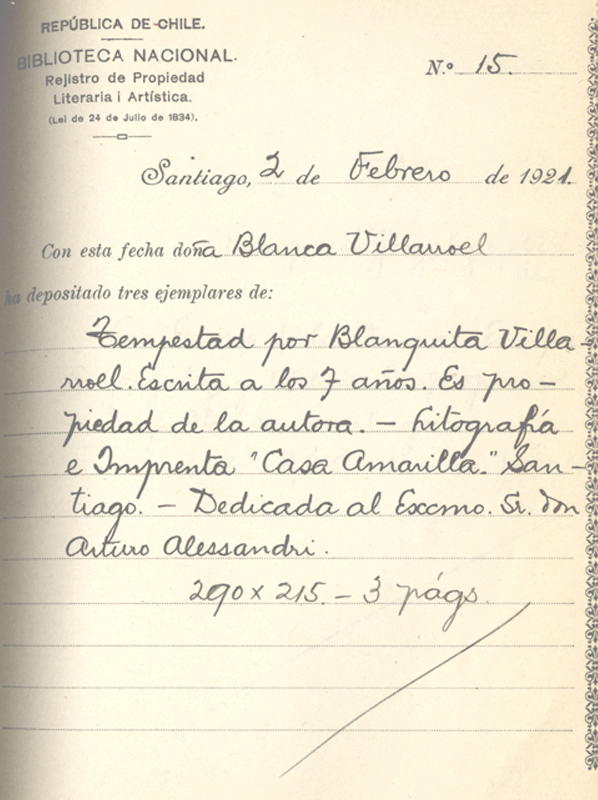 REPÚBLICA DE CHILE.
BIBLIOTECA NACIONAL.
Rejistro de Propiedad
Literaria i Artística.
(Lei de 24 de Julio de 1834).
N.º 15.
Santiago, 2 de Febrero de 1921.
Con esta fecha doña Blanca Villarroel
ha depositado tres ejemplares de:
Tempestad por Blanquita Villa-
rroel. Escrita a los 7 años. Es pro-
piedad de la autora. - Litografía
e Imprenta "Casa Amarilla." San-
tiago. - Dedicada al Excmo. Sr. don
Arturo Alessandri.
290 x 215. - 3 págs.